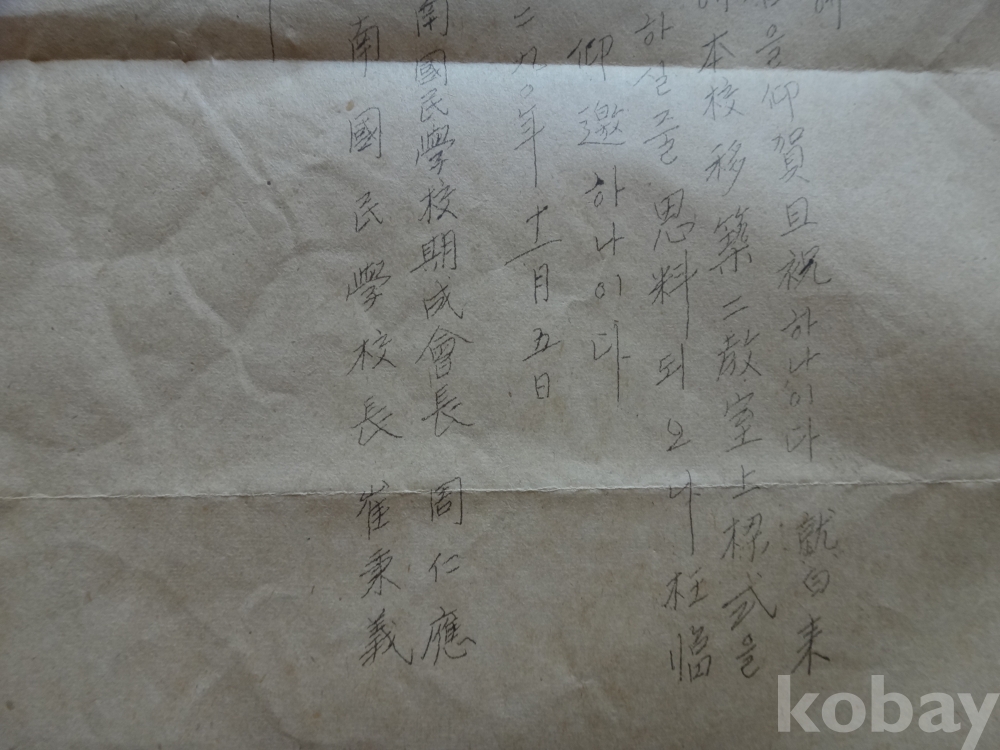 에
을 仰賀且祝하나이다 就白来
에 本校移築二教室上樑式을
하실 줄 思料되오나 枉臨
仰邀하나이다
二九〇年 十一月 五日
南國民學校期成會長 周仁應
南國民學校長 崔秉義
kobay